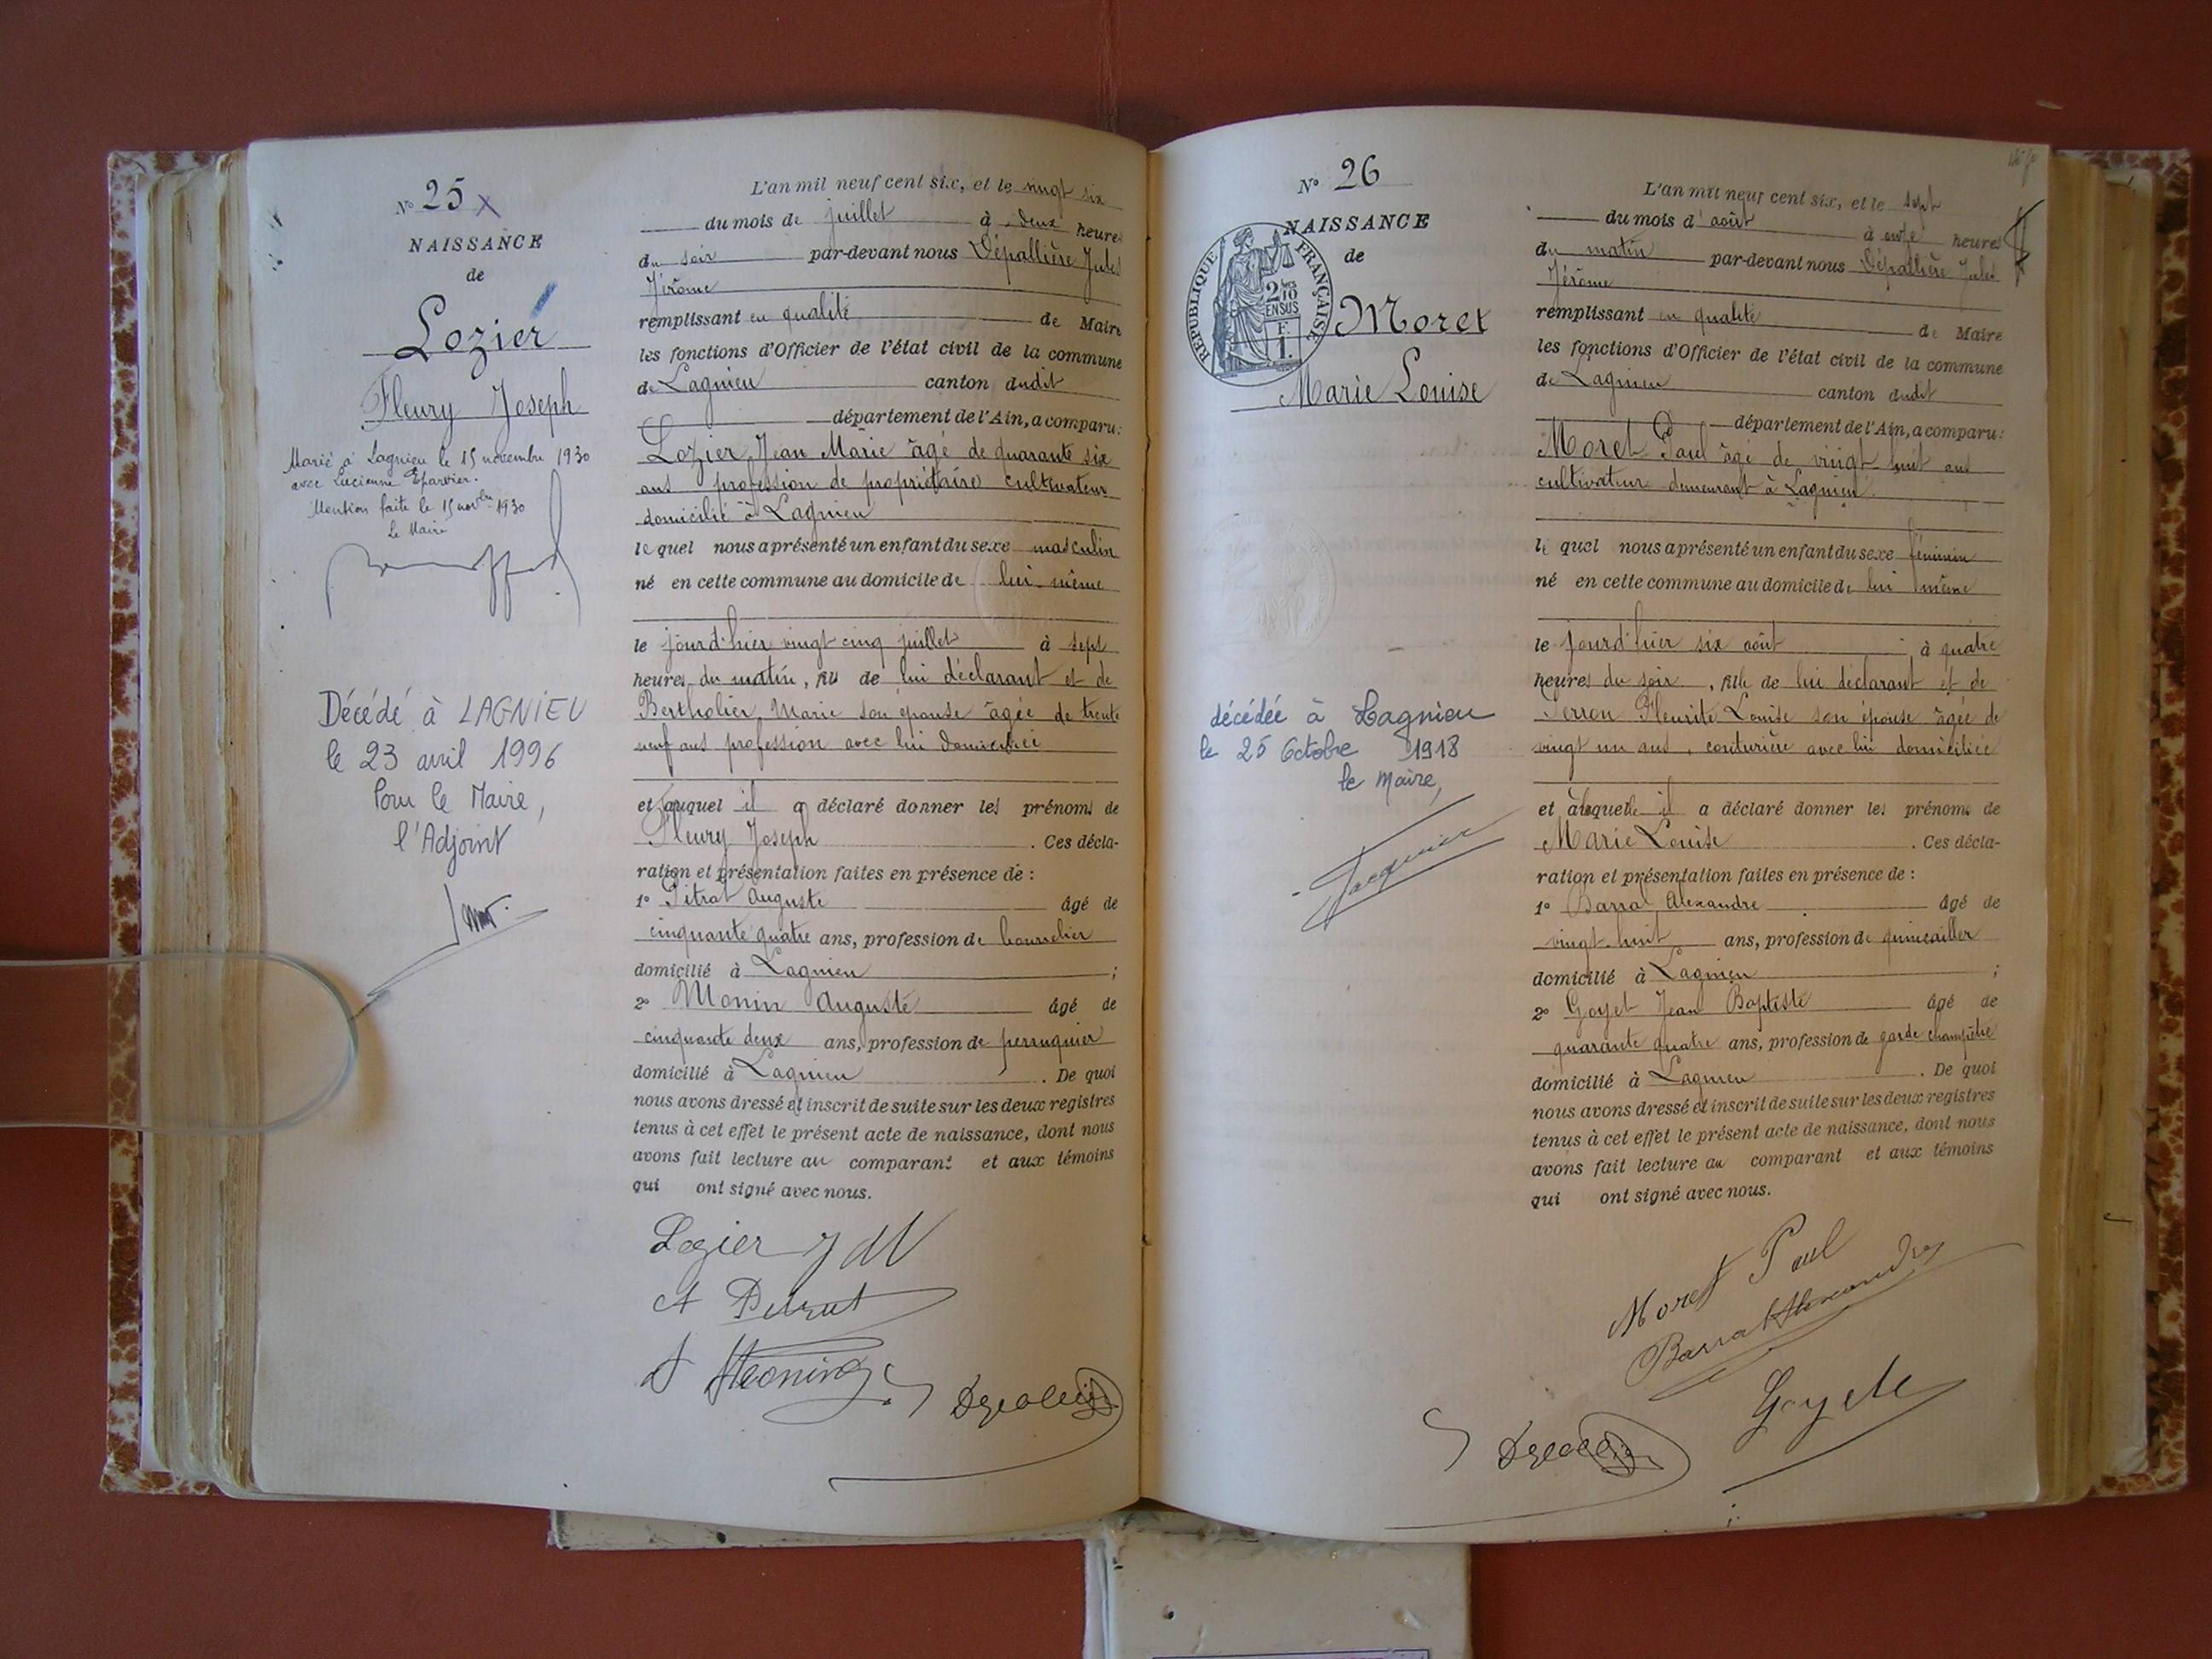 N° 25 X
NAISSANCE
de
Lozier
Fleury Joseph
Marié à Lagnieu le 15 novembre 1930
avec Lucienne Eparvier.
Mention faite le 15 novbre 1930
Le Maire
Décédé à LAGNIEU
le 23 avril 1996
Pour le Maire,
l'Adjoint
L'an mil neuf cent six, et le vingt six
du mois de juillet à deux heures
du soir par-devant nous Dépallière Jules
Jérôme
remplissant en qualité de Maire
les fonctions d'Officier de l'état civil de la commune
de Lagnieu canton dudit
département de l'Ain, a comparu:
Lozier Jean Marie âgé de quarante six
ans profession de propriétaire cultivateur
domicilié à Lagnieu
lequel nous a présenté un enfant du sexe masculin
né en cette commune au domicile de lui même
le jourd'hier vingt cinq juillet à sept
heures du matin, fils de lui déclarant et de
Bertholier Marie son épouse âgée de trente
neuf ans profession avec lui domicilié
et auquel il a déclaré donner les prénoms de
Fleury Joseph. Ces décla-
ration et présentation faites en présence de :
1° Pitrat Auguste âgé de
cinquante quatre ans, profession de bourrelier
domicilié à Lagnieu ;
2° Monin Auguste âgé de
cinquante deux ans, profession de perruquier
domicilié à Lagnieu. De quoi
nous avons dressé et inscrit de suite sur les deux registres
tenus à cet effet le présent acte de naissance, dont nous
avons fait lecture au comparant et aux témoins
qui ont signé avec nous.
Lozier J M
A Pitrat
N° 26
NAISSANCE
de
RÉPUBLIQUE FRANÇAISE
2/10
EN SUS
F.
1.
Moret
Marie Louise
décédée à Lagnieu
le 25 Octobre 1918
le Maire,
Jacquier
L'an mil neuf cent six, et le sept
du mois d'août à onze heures
du matin par-devant nous Dépallière Jules
Jérôme
remplissant en qualité de Maire
les fonctions d'Officier de l'état civil de la commune
de Lagnieu canton dudit
département de l'Ain, a comparu:
Moret Paul âgé de vingt huit ans
cultivateur demeurant à Lagnieu.
lequel nous a présenté un enfant du sexe féminin
né en cette commune au domicile de lui même
le jourd'hier six août à quatre
heures du soir, fille de lui déclarant et de
Perron Fleurite Louise son épouse âgée de
vingt un ans, couturière avec lui domiciliée
et à laquelle il a déclaré donner les prénoms de
Marie Louise. Ces décla-
ration et présentation faites en présence de :
1° Barral Alexandre âgé de
vingt-huit ans, profession de quincailler
domicilié à Lagnieu ;
2° Goyet Jean Baptiste âgé de
quarante quatre ans, profession de garde champêtre
domicilié à Lagnieu. De quoi
nous avons dressé et inscrit de suite sur les deux registres
tenus à cet effet le présent acte de naissance, dont nous
avons fait lecture au comparant et aux témoins
qui ont signé avec nous.
Moret Paul
Barral Alexandre